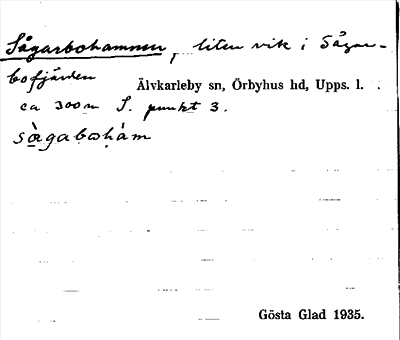 Sågarbohamnen, liten vik i Sågar-
bofjärden
Älvkarleby sn, Örbyhus hd, Upps. l.
ca 300 m S. punkt 3.
sàgabohám
Gösta Glad 1935.